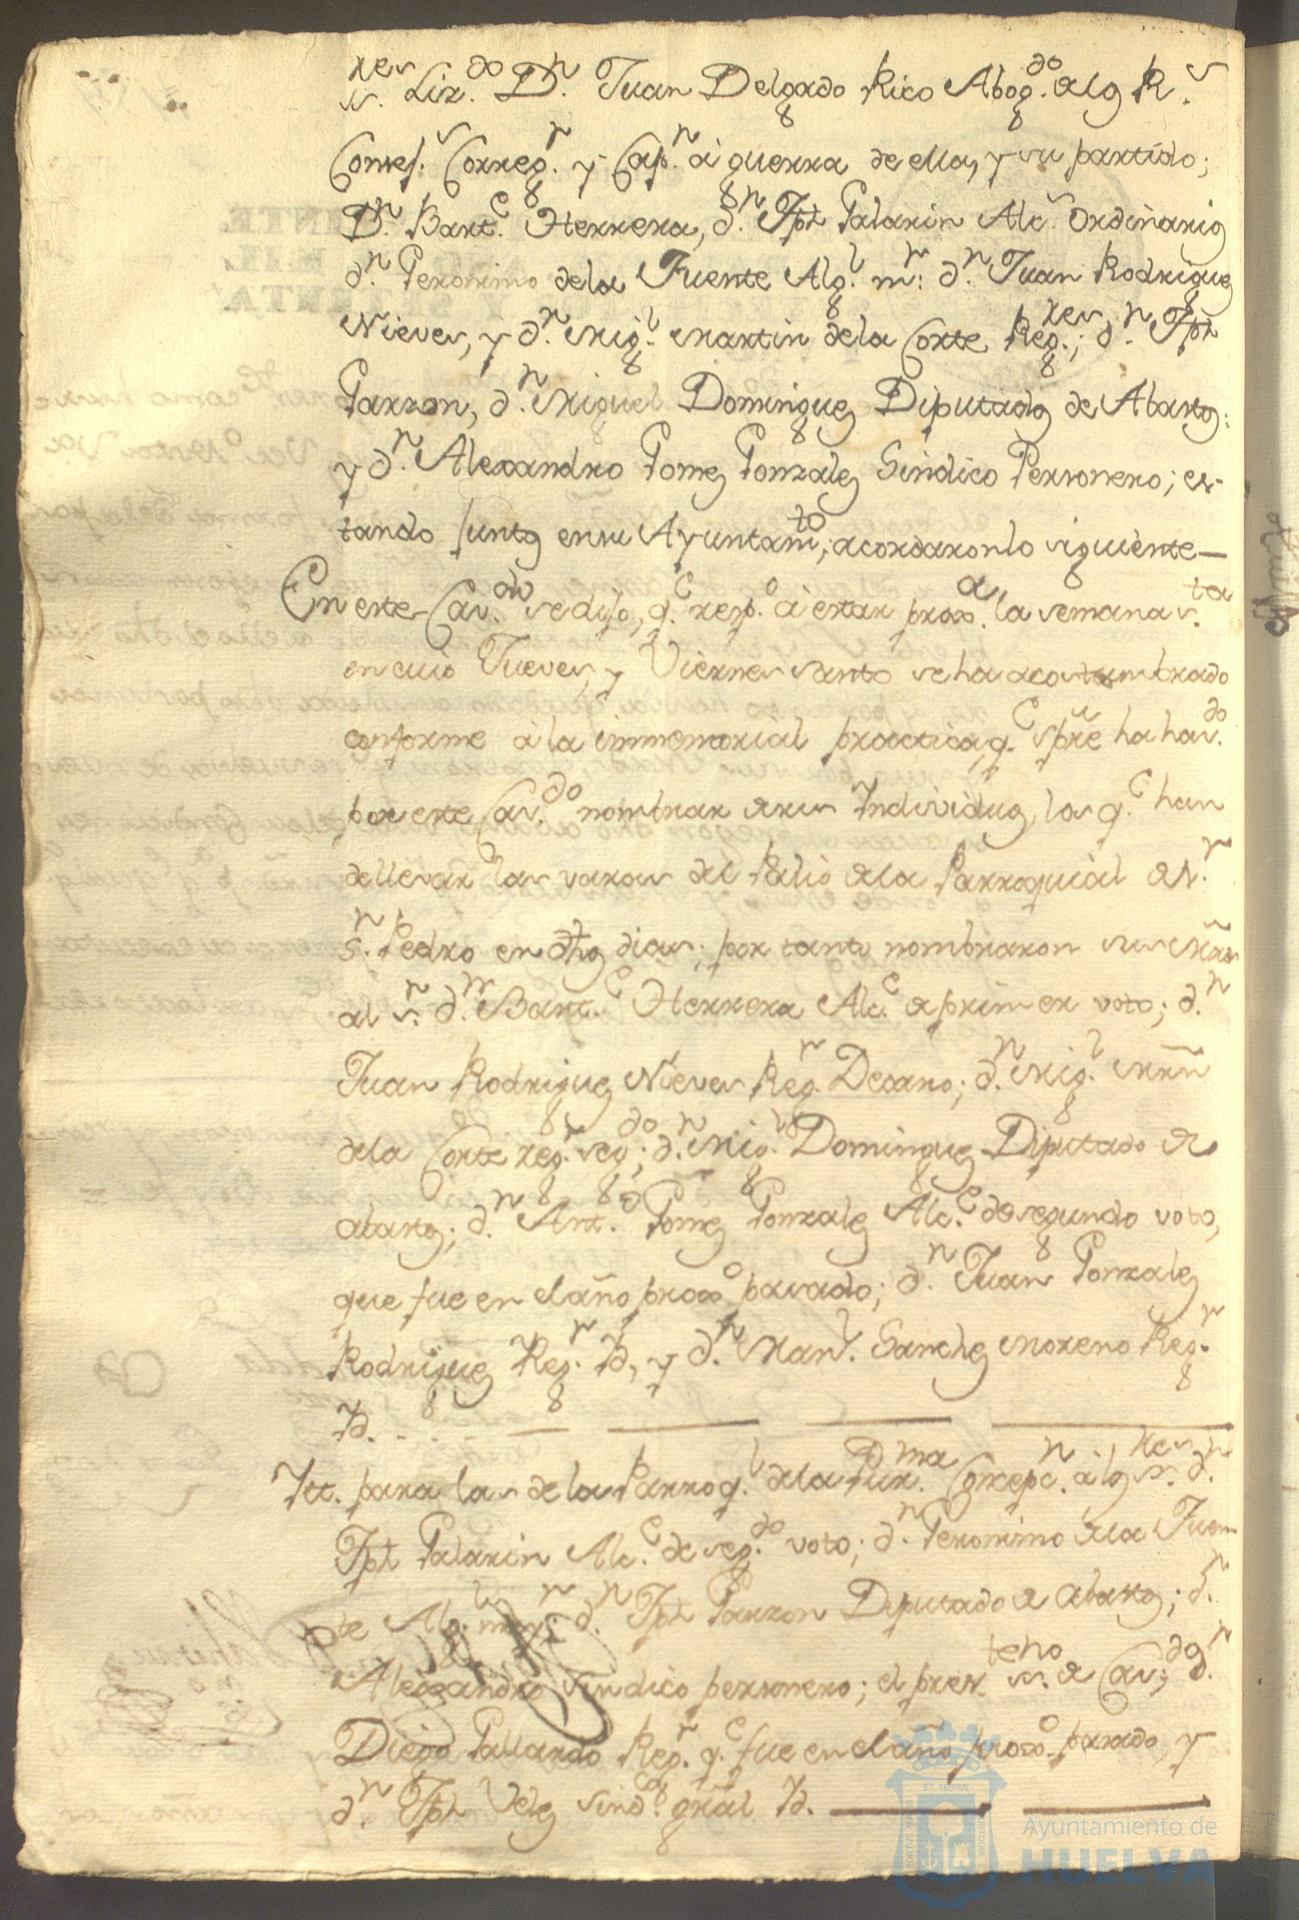 s.res Liz.do D.n Juan Delgado Rico Abog.do de los R.s
Consej.s Correg.r y Cap.n à guerra de ella, y su partido;
D.n Bart.e Herrera, d.n Jph Galarin Alc.s Ordinarios
d.n Geronimo de la Fuente Alg.l m.r: d.n Juan Rodriguez
Nieves, y d.n Mig.l Martin de la Corte Reg.res; d.n Jph
Garzon, d.n Miguel Dominguez Diputados de Abastos:
y d.n Alexandro Gomez Gonzalez Sindico Personero; es-
tando juntos en su Ayuntam.to; acordaron lo siguiente—
En este Cav.do se dijo, q.e resp.o à estar prox.a la semana s.ta
en cuio Jueves, y Viernes santo se ha acostumbrado
conforme à la immemorial practica, q.e spre ha hav.do
por este Cav.do nombrar de sus Individuos, los q.e han
de llevar las varas del Palio de la Parroquial de S.r
S.n Pedro en dhos dias; por tanto nombraron sus Mrds
al s.r d.n Bart.e Herrera Alc.e de primer voto; d.n
Juan Rodriguez Nieves Reg.r Decano; d.n Mig.l Mrñ
de la Corte reg.r seg.do; d.n Mig.l Dominguez Diputado de
abastos; d.n Ant.o Gomez Gonzalez Alc.e de segundo voto,
que fue en el año prox.o pasado; d.n Juan Gonzalez
Rodriguez Reg.r Yd, y d.n Man.l Sanchez Moreno Reg.r
Yd. - - - — — — —
Ytt. para las de la Parroq.l de la Pur.ma Concepc.n à los s.res d.n
Jph Galarin Alc.e de seg.do voto; d.n Geronimo de la Fuen-
te Alg.l may.r d.n Jph Garzon Diputado de abastos; d.n
Alexandro Sindico personero; el pres.te ss.no de Cav.do; d.n
Diego Gallardo Reg.r q.e fue en el año prox.o pasado, y
d.n Jph Velez Sind.o gral Yd. — —
ET TERRÆ
Ayuntamiento de
HUELVA